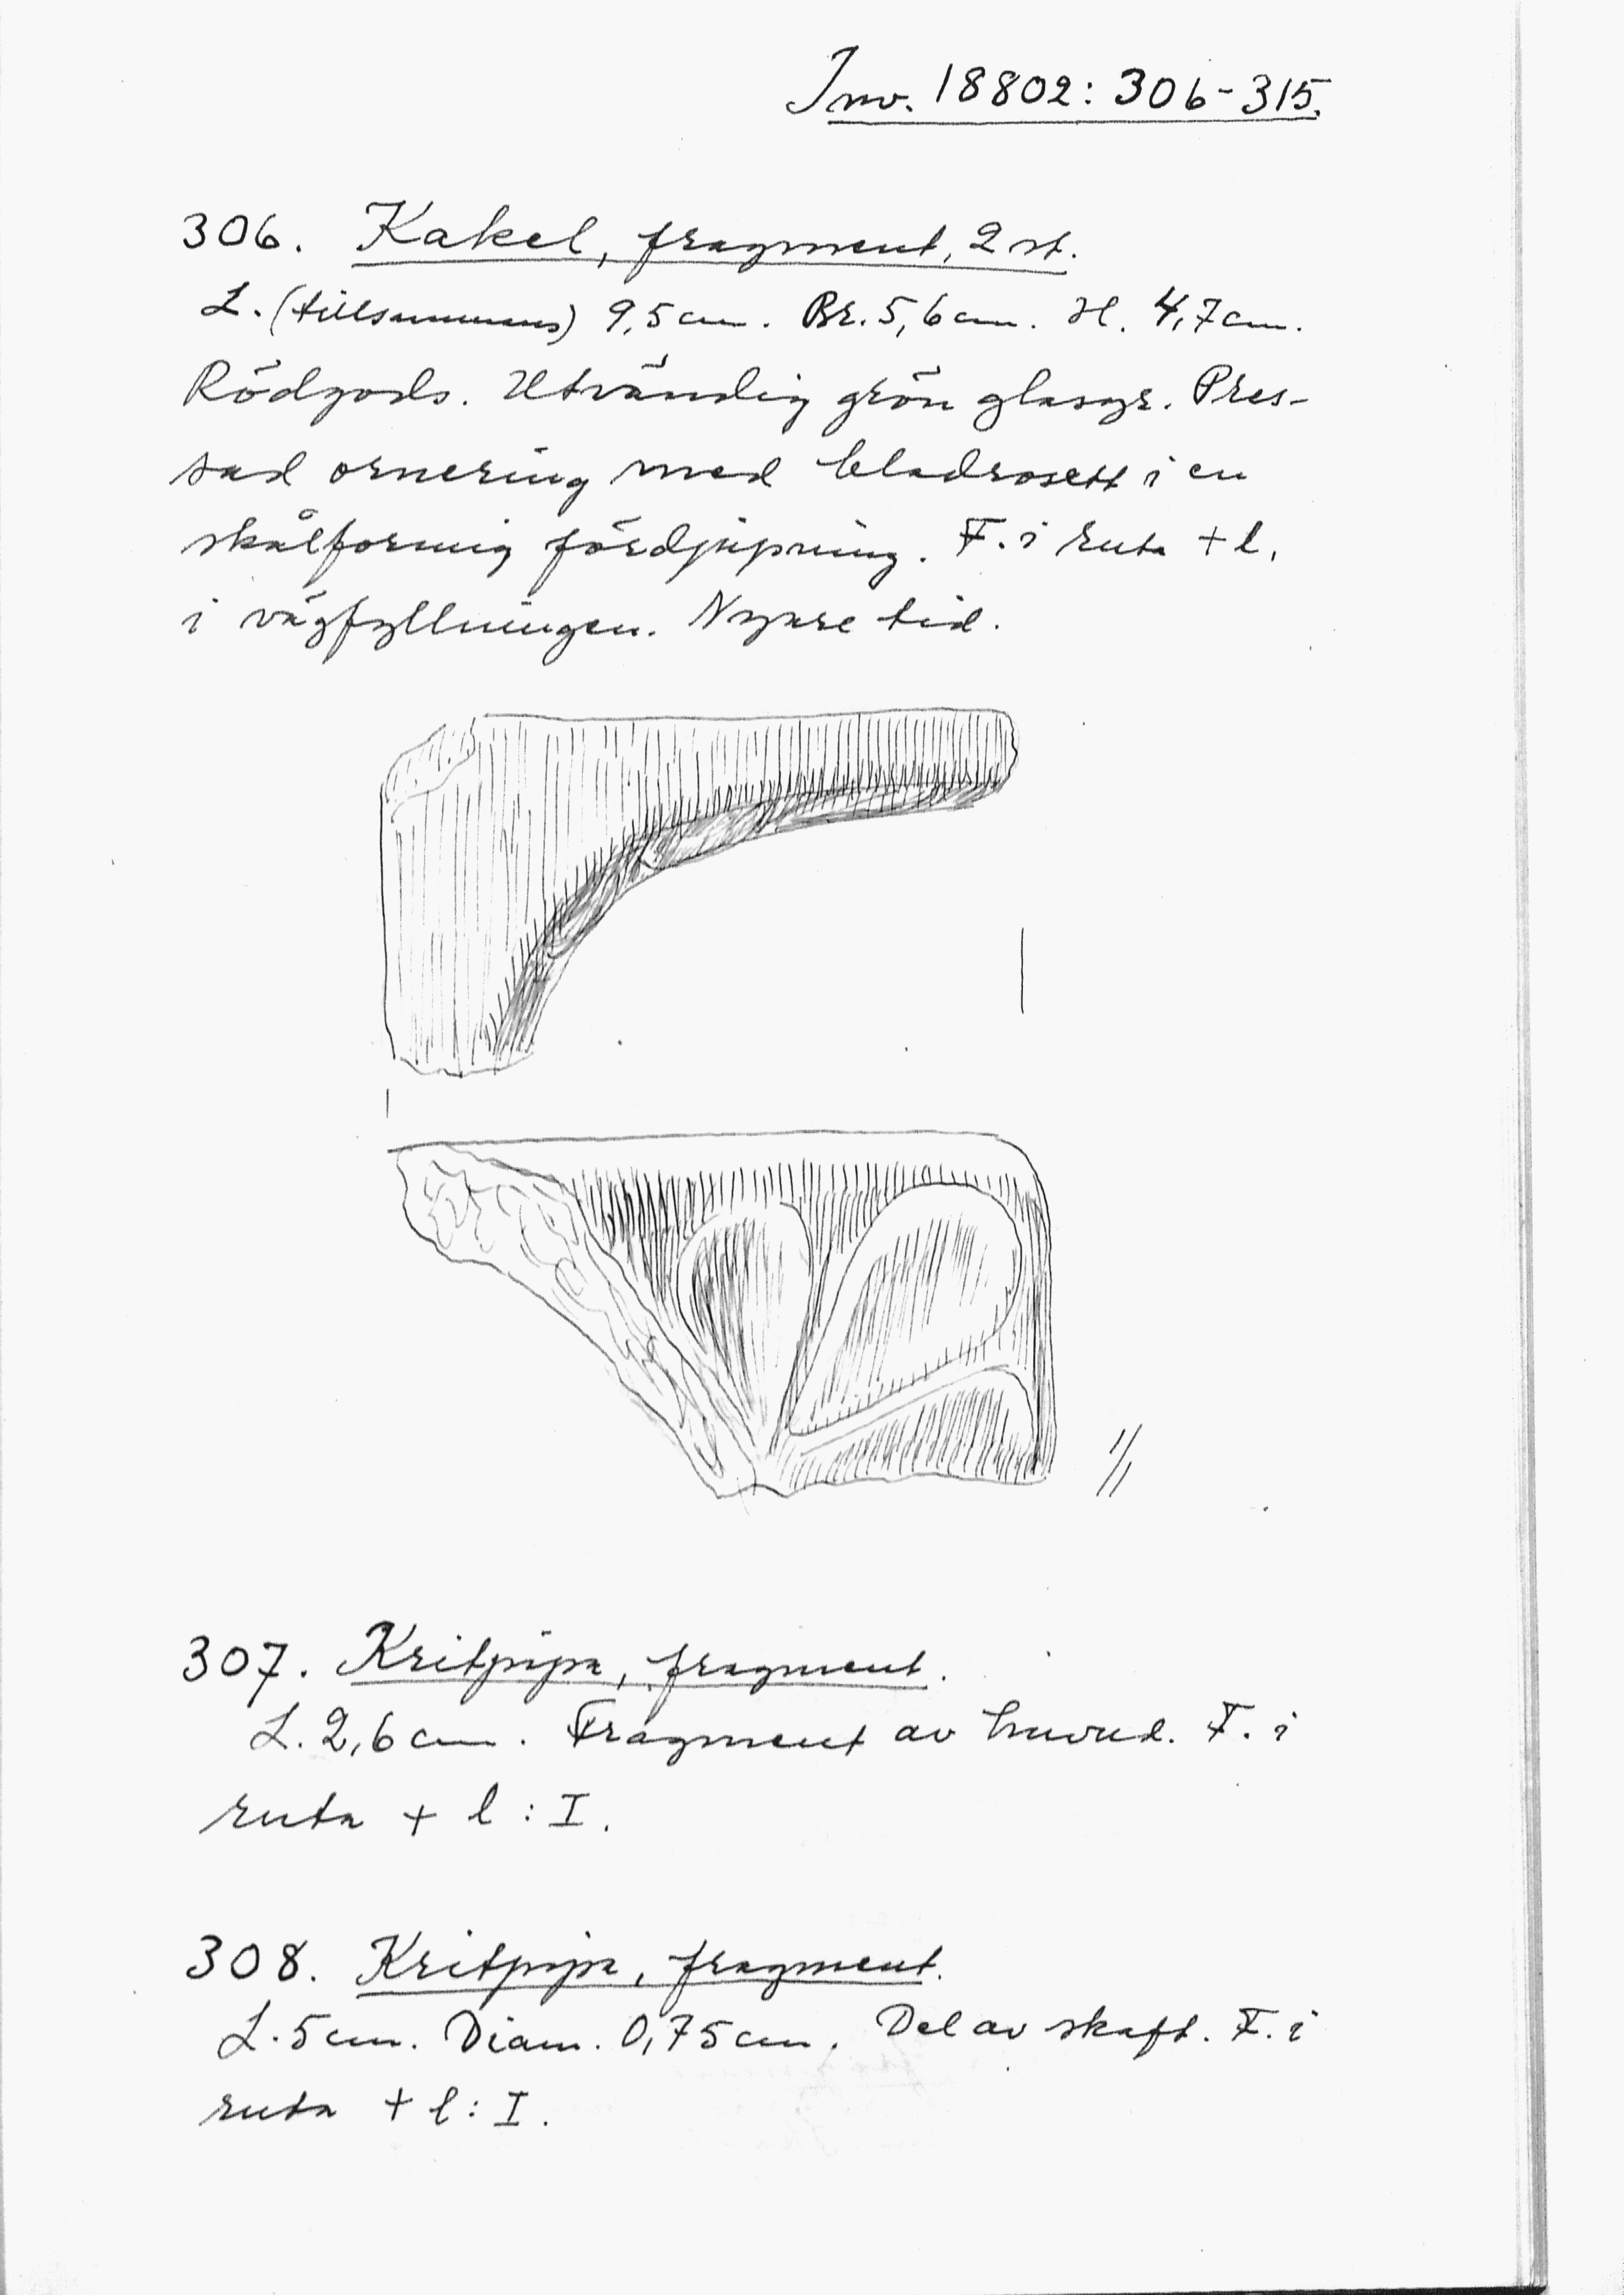 Inv. 18802: 306-315.
306. Kakel, fragment, 2 st.
L. (tillsammans) 9,5 cm. Br. 5,6 cm. H. 4,7 cm.
Rödgods. Utvändig grön glasyr. Pres-
sad ornering med bladrosett i en
skålformig fördjupning. F. i ruta + l,
i vägfyllningen. Nyare tid.
1/1
307. Kritpipa, fragment.
L. 2,6 cm. Fragment av huvud. F. i
ruta + l : I.
308. Kritpipa, fragment.
L. 5 cm. Diam. 0,75 cm. Del av skaft. F. i
ruta + l : I.